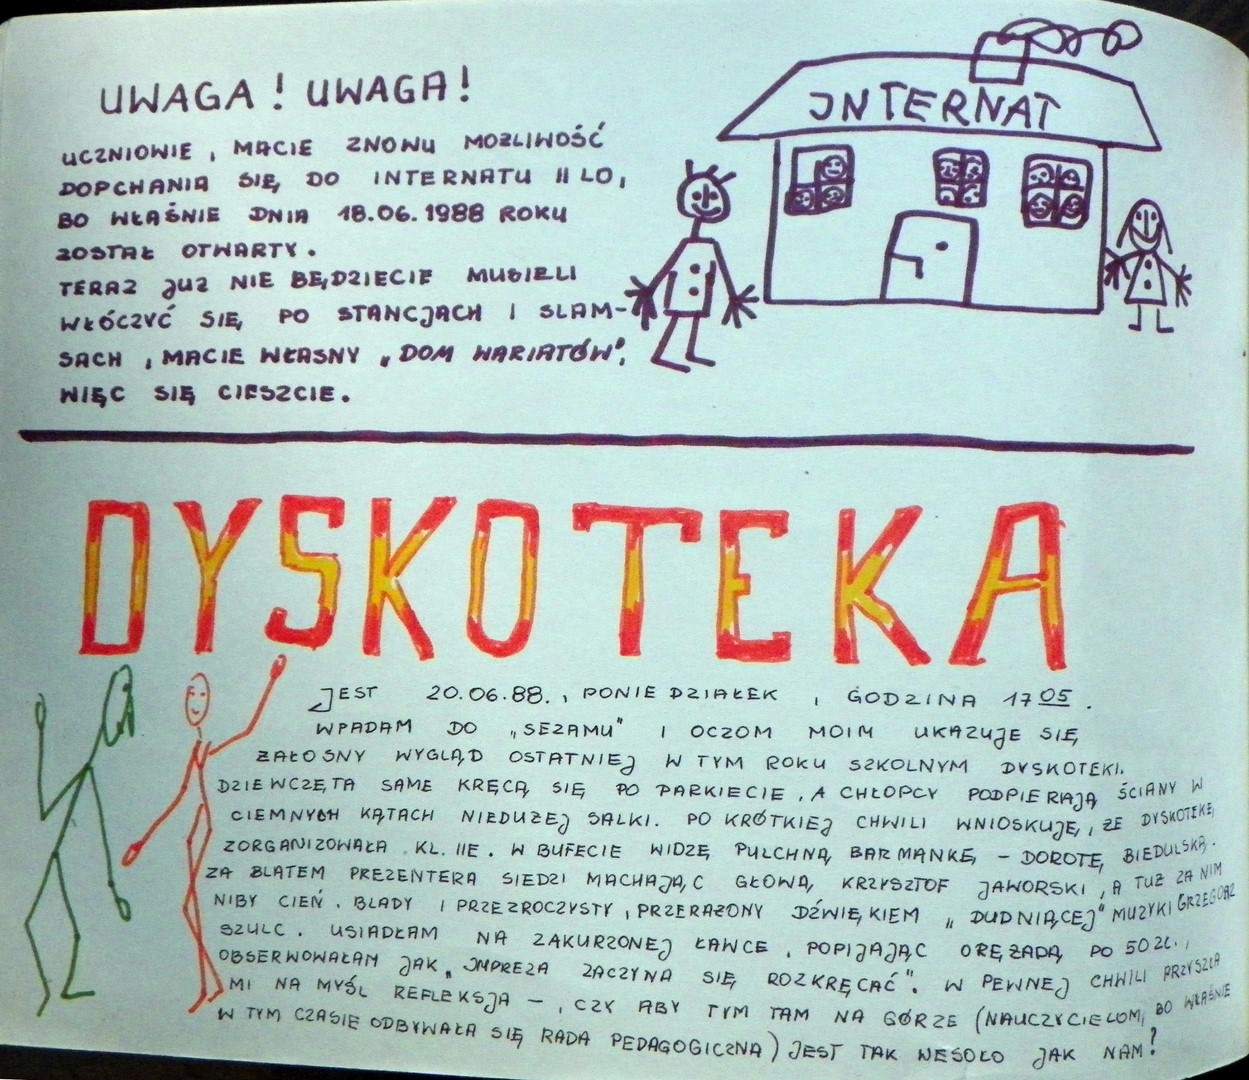 UWAGA! UWAGA!
UCZNIOWIE, MACIE ZNOWU MOŻLIWOŚĆ
DOPCHANIA SIĘ DO INTERNATU II LO,
BO WŁAŚNIE DNIA 18.06.1988 ROKU
ZOSTAŁ OTWARTY.
TERAZ JUŻ NIE BĘDZIECIE MUSIELI
WŁÓCZYĆ SIĘ PO STANCJACH I SLAM-
SACH, MACIE WŁASNY „DOM WARIATÓW",
WIĘC SIĘ CIESZCIE.
INTERNAT
DYSKOTEKA
JEST 20.06.88., PONIEDZIAŁEK, GODZINA 17 05.
WPADAM DO „SEZAMU" I OCZOM MOIM UKAZUJE SIĘ
ŻAŁOSNY WYGLĄD OSTATNIEJ W TYM ROKU SZKOLNYM DYSKOTEKI.
DZIEWCZĘTA SAME KRĘCĄ SIĘ PO PARKIECIE, A CHŁOPCY PODPIERAJĄ ŚCIANY W
CIEMNYCH KĄTACH NIEDUŻEJ SALKI. PO KRÓTKIEJ CHWILI WNIOSKUJĘ, ŻE DYSKOTEKĘ
ZORGANIZOWAŁA KL. IIE. W BUFECIE WIDZĘ PULCHNĄ BARMANKĘ – DOROTĘ BIEDULSKĄ.
ZA BLATEM PREZENTERA SIEDZI MACHAJĄC GŁOWĄ, KRZYSZTOF JAWORSKI, A TUŻ ZA NIM
NIBY CIEŃ. BLADY I PRZEZROCZYSTY, PRZERAŻONY DŹWIĘKIEM „DUDNIĄCEJ" MUZYKI GRZEGORZ
SZULC. USIADŁAM NA ZAKURZONEJ ŁAWCE, POPIJAJĄC ORĘŻADĄ PO 50 ZŁ.,
OBSERWOWAŁAM JAK „IMPREZA ZACZYNA SIĘ ROZKRĘCAĆ". W PEWNEJ CHWILI PRZYSZŁA
MI NA MYŚL REFLEKSJA –, CZY ABY TYM TAM NA GÓRZE (NAUCZYCIELOM, BO WŁAŚNIE
W TYM CZASIE ODBYWAŁA SIĘ RADA PEDAGOGICZNA) JEST TAK WESOŁO JAK NAM?